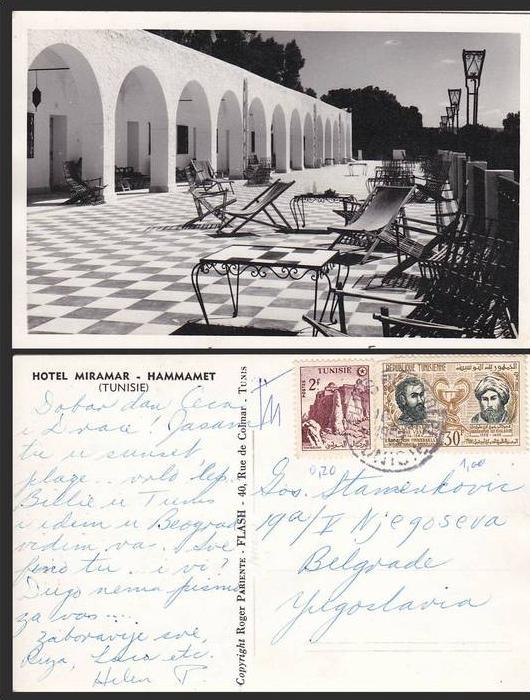 HOTEL MIRAMAR - HAMMAMET
(TUNISIE)
Dobar dan Ceca
i Drace Ja sam
tu u sunset
plage... vrlo lepo
Billie u Tunis
i idem u Beograd
vidim va. Sve
fino tu.. i vi?
Dugo nema pisma
za vas....
zaboravije sve,
Ruza, etc.
Helen P.
Copyright Roger PARIENTE - FLASH - 40, Rue de Colmar - TUNIS
POSTES 2F TUNISIE
RÉPUBLIQUE TUNISIENNE
30F
0,20
1,00
Gos. Stamenkovic
19a/V Njegoseva
Belgrade
Yugoslavia